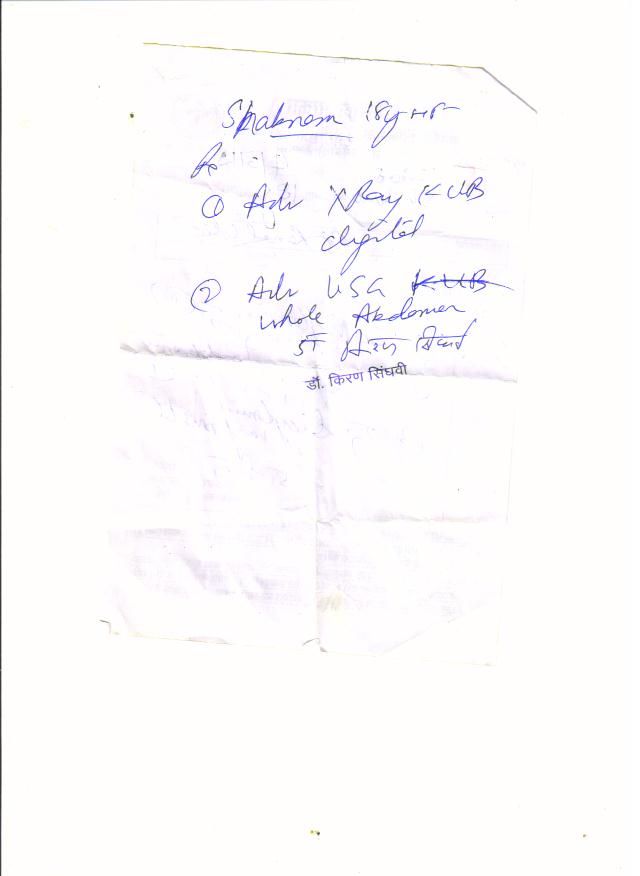 Shabnam 18y
Rx
① Adv XRay KUB
digital
② Adv USG KUB
whole Abdomen
डॉ. किरण सिंघवी